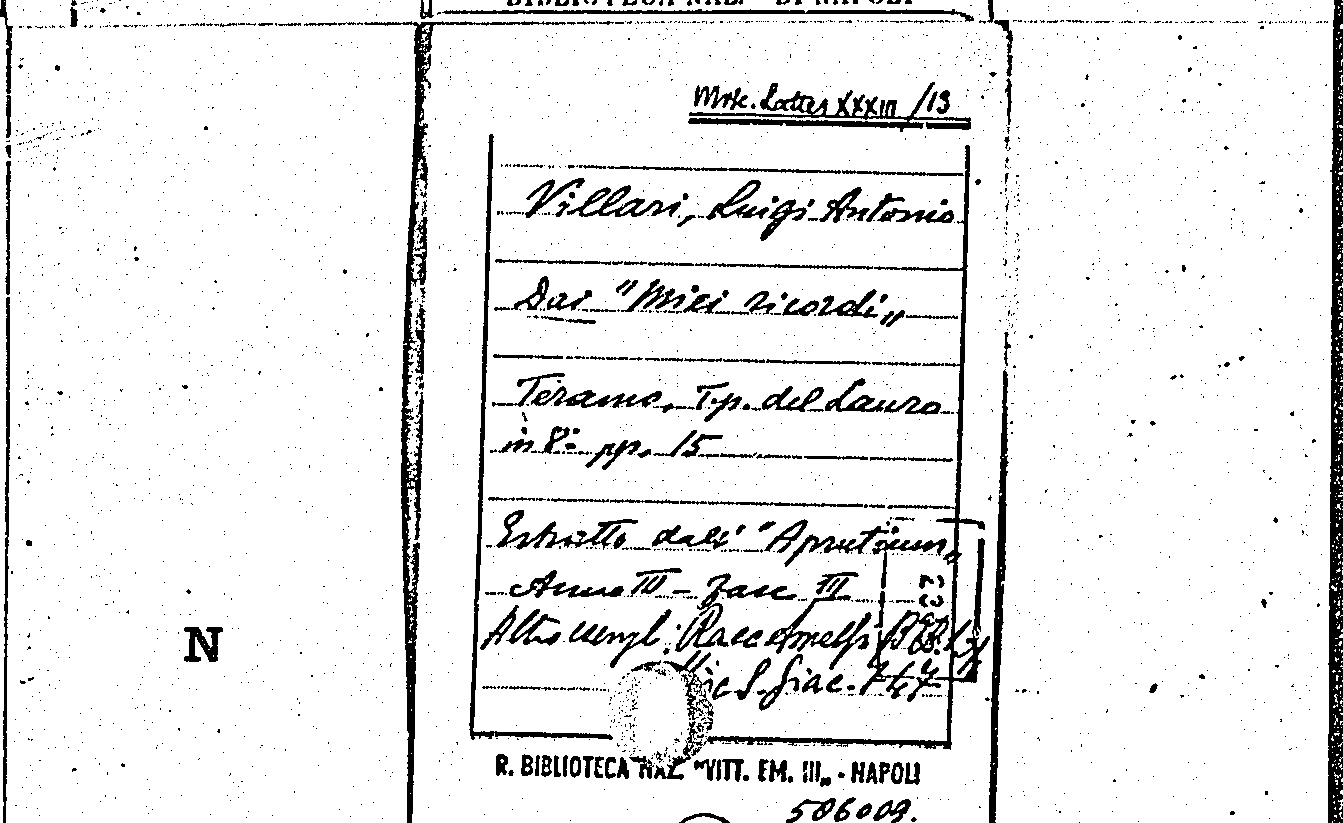 BIBLIOTECA NAZ. DI NAPOLI
XXXIII /13
Villari, Luigi Antonio
Dai "Miei ricordi„
Teramo, Tip. del Lauro
in 8º pp. 15
Estratto dall' "Aprutium„
Anno III - Fasc III
Altro esempl: Racc Amalfi B
S. Giac.
N
R. BIBLIOTECA NAZ. "VITT. EM. III„ - NAPOLI
586009.